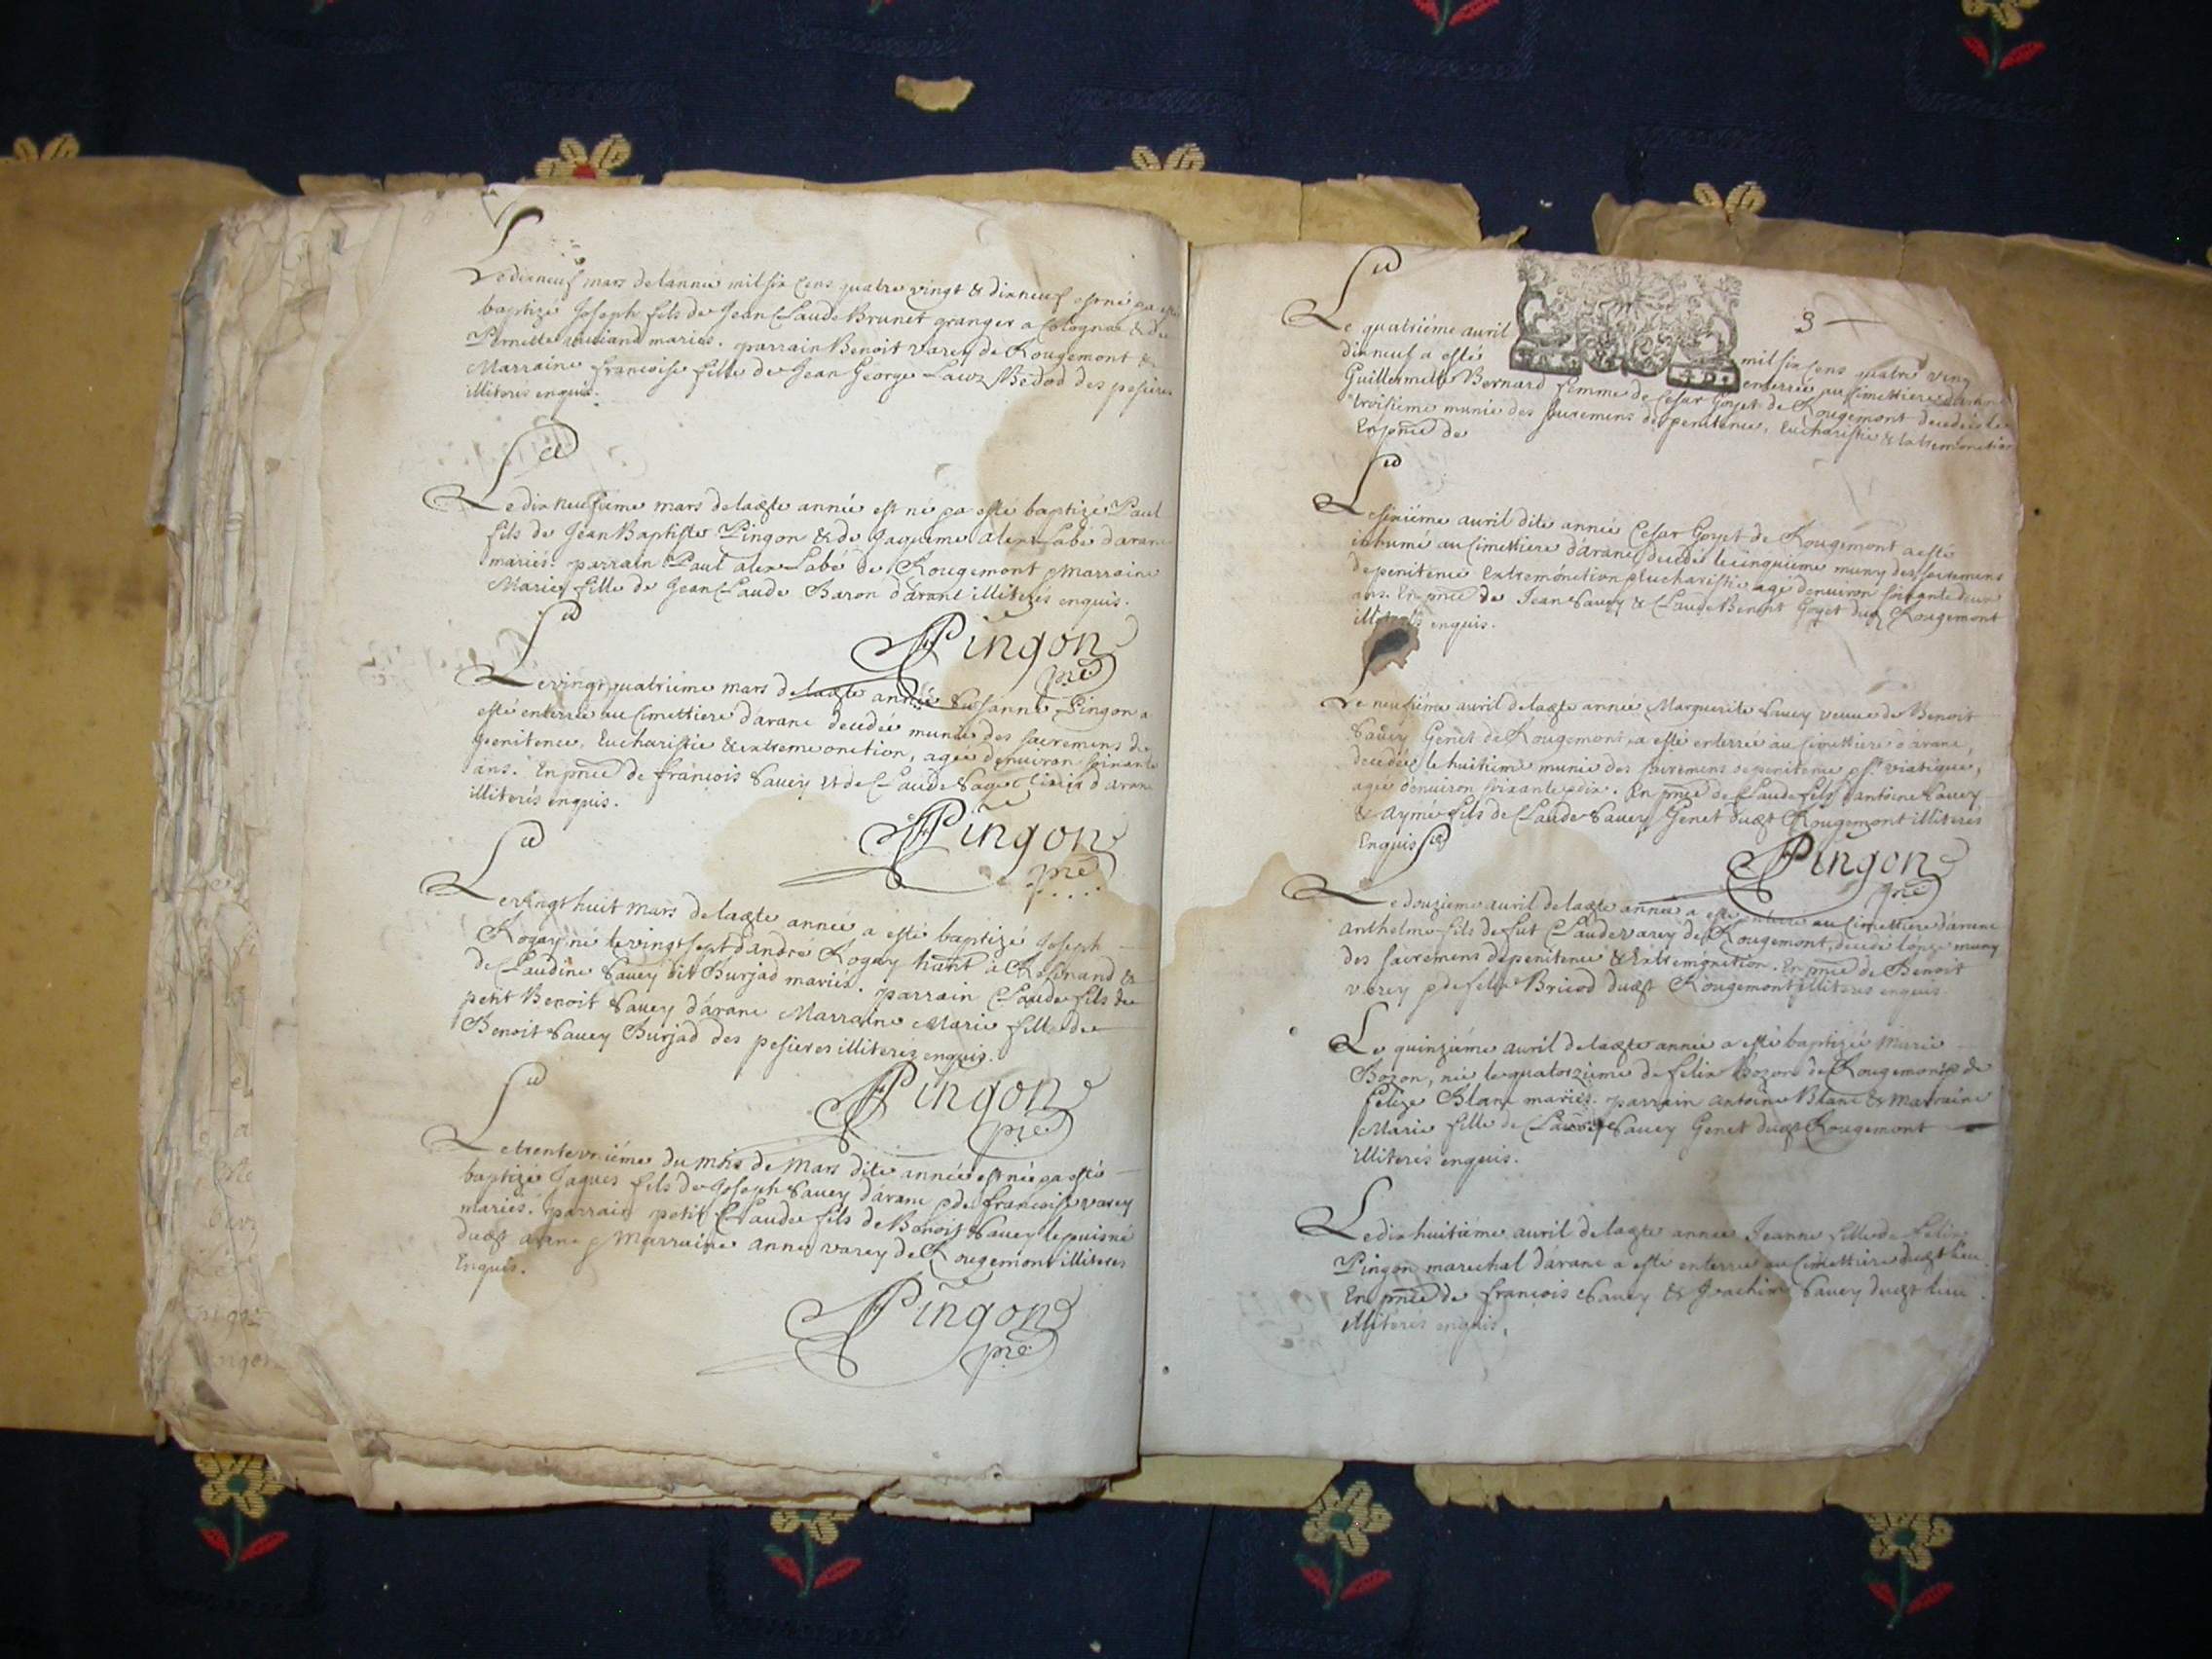 Le dixneuf mars de lannée mil six cens quatre vingt & dixneuf est né ga esté
baptizé Joseph fils de Jean Claude Brunet granger a Colognat & de
Pernette mariés. parrain Benoit varey de Rougemont &
Marraine francoise fille de Jean George Bedod des pesieres
illiterés enquis.
Le dix neufieme mars delaqte année est né ga esté baptizé Paul
fils de Jean Baptiste Pingon & de Jaqueme alex Labé daranc
mariés. parrain Paul alex Labé de Rougemont gMarraine
Marie fille de Jean Claude Baron d'aranc illiterés enquis.
Pingon
pre
Le vingt quatriéme mars delaqte année Susanne Pingon a
esté enterrée au Cimettiere d'aranc decedée munie des sacremens de
penitence, Eucharistie & extremeonction, agée d'enuiron soixante
ans. En pnce de francois Sauey et de Claude daranc
illiterés enquis.
Pingon
pre
Le vingt huit mars delaqte année a esté baptizé Joseph
Rogay né le vingt sept d'andré Rogay hant à Resinand &
de Claudine Sauey dit Burjad mariés. parrain Claude fils de
petit Benoit Sauey d'aranc Marraine Marie fille de
Benoit Sauey Burjad des pesieres illiterés enquis.
Pingon
pre
Le trente vniéme du mois de Mars dite année est né ga esté
baptizé Jaques fils de Joseph Sauey d'aranc gde francoise varey
mariés. parrain petit Claude fils de Benoit Sauey lepuisné
duqt aranc g Marraine anne varey de Rougemont illiteres
Enquis.
Pingon
pre
3
Le quatriéme auril mil six cens quatre ving
dixneuf a esté enterrée au Cimettiere daranc
Guillermette Bernard femme de Cesar Goyet de Rougemont decedée le
troisieme munie des sacremens de penitence, Eucharistie & extremonction
En pnce de
Le sixiéme auril dite année Cesar Goyet de Rougemont a esté
inhumé au Cimettiere d'aranc, decedé le cinquiéme muny des sacremens
de penitence Extremónction gEucharistie agé d'enuiron soixante deux
ans. En pnce de Jean Sauey & Claude Benoit Goyet duqt Rougemont
illiterés enquis.
Le neufiéme auril delaqte année Marguerite Sauey veuue de Benoit
Sauey Genet de Rougemont a esté enterrée au Cimettiere d'aranc,
decedée le huitiéme munie des sacremens de penitence g st viatique,
agée d'enuiron soixante gdix. En pnce de Claude fils d'antoine Sauey
& Aymé fils de Claude Sauey Genet duqt Rougemont illiterés
Enquis
Pingon
pre
Le douzieme auril delaqte année a esté enterré au Cimettiere d'aranc
anthelme fils de fut Claude varey de Rougemont, decedé lónze muny
des sacremens de penitence & Extremonction. En pnce de Benoit
varey gde felix Bricod duqt Rougemont illiteres enquis.
Le quinziéme auril delaqte année a esté baptizée Marie
Bozon, née le quatorzieme de felix Bozon de Rougemont g de
felize Blanc mariés. parrain antoine Blanc & Marraine
Marie fille de Claude Sauey Genet duqt Rougemont
illiterés enquis.
Le dix huitiéme auril delaqte année Jeanne fille de felix
Pingon marechal d'aranc a esté enterrée au Cimettiere duqt lieu.
En pnce de francois Sauey & Joachim Sauey duqt lieu
illiterés enquis.